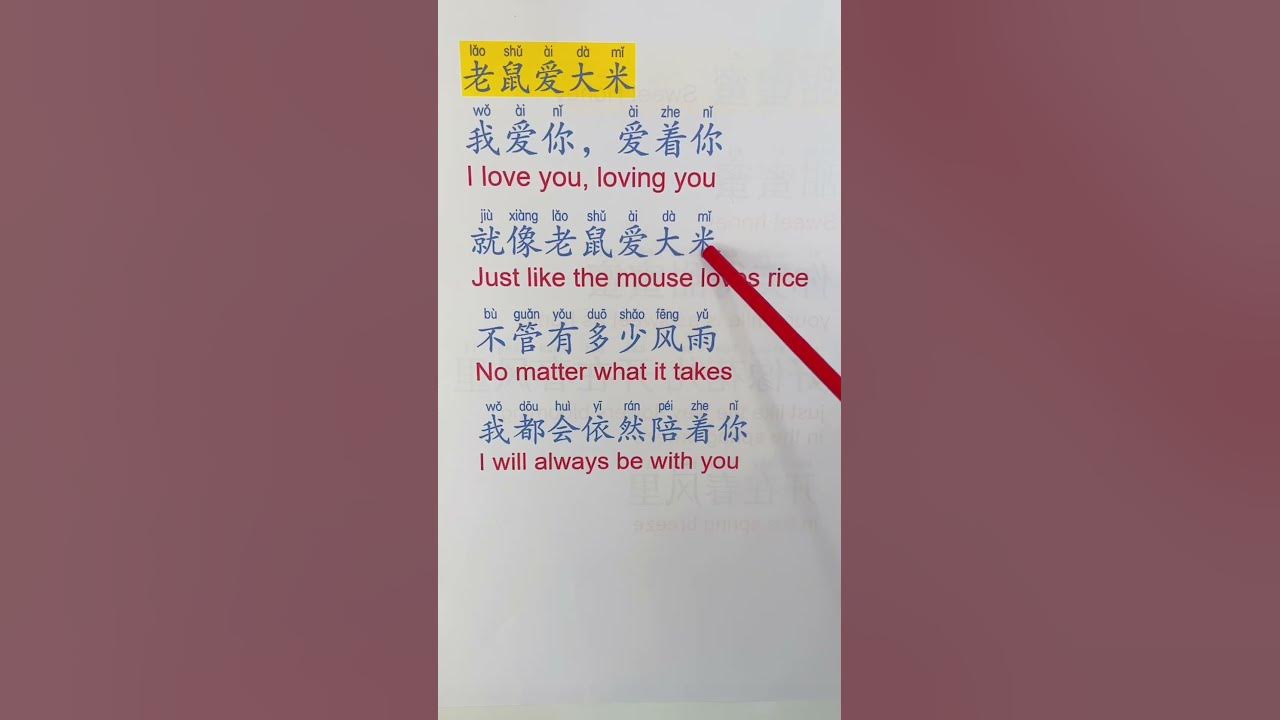 lǎo shǔ ài dà mǐ
老鼠爱大米
wǒ ài nǐ ài zhe nǐ
我爱你，爱着你
I love you, loving you
jiù xiàng lǎo shǔ ài dà mǐ
就像老鼠爱大米
Just like the mouse loves rice
bù guǎn yǒu duō shǎo fēng yǔ
不管有多少风雨
No matter what it takes
wǒ dōu huì yī rán péi zhe nǐ
我都会依然陪着你
I will always be with you